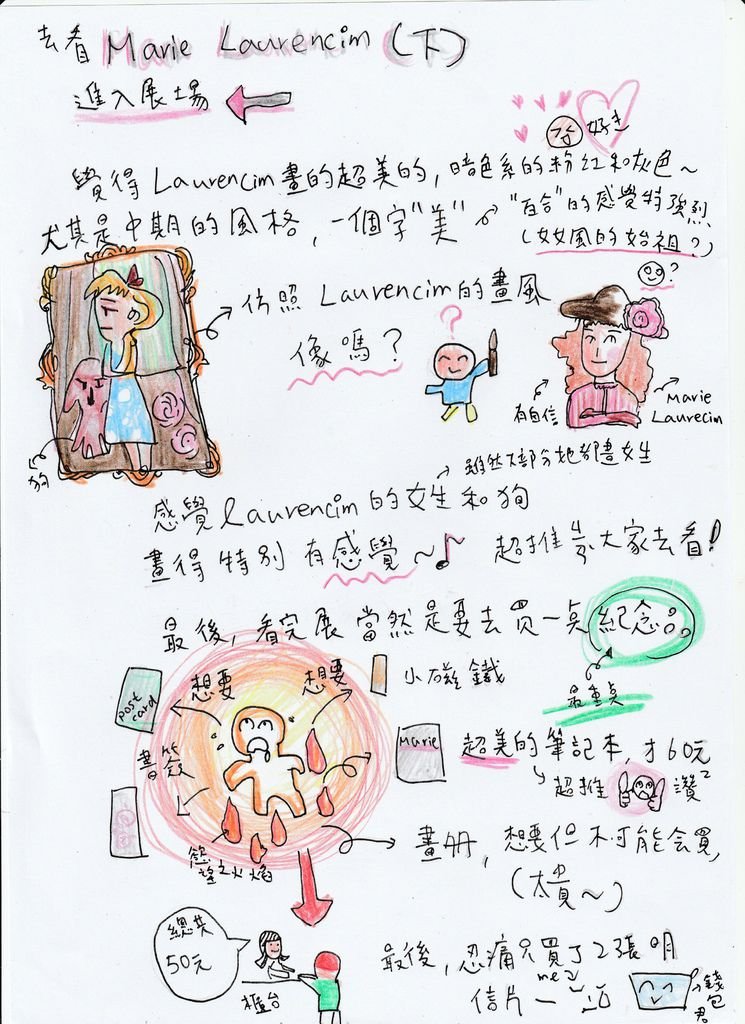 去看 Marie Laurencim (下)
進入展場
好美
覺得 Laurencim 畫的超美的, 暗色系的粉紅和灰色~
尤其是中期的風格, 一個字"美"
"百合"的感覺特強烈
(女女風的始祖?)
?
仿照 Laurencim 的畫風
像嗎?
?
有自信
Marie
Laurecim
狗
雖然大部分她都畫女生
感覺 Laurencim 的女生和狗
畫得特別有感覺~♪ 超推薦大家去看!
最後, 看完展當然是要去買一点紀念品。
最重点
想要
想要
小磁鐵
post
card
Marie
超美的筆記本, 才60元
超推
讚
書籤
慾望之火焰
畫冊, 想要但不可能会買
(太貴~)
總共
50元
櫃台
最後, 忍痛只買了2張明
信片
me
錢包君